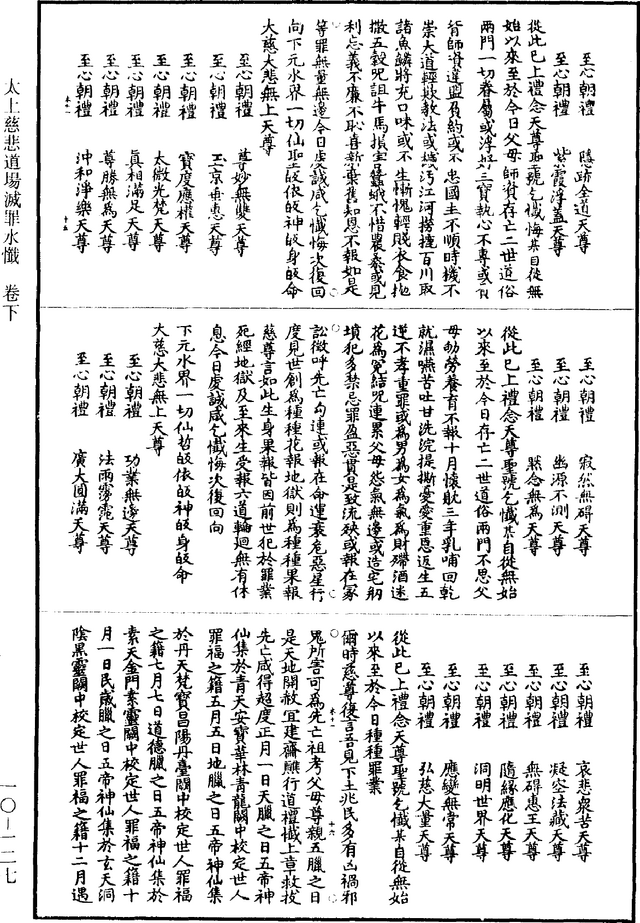 太上慈悲道場滅罪水懺　卷下
一〇—一二七
至心朝禮　隱跡全道天尊
至心朝禮　紫霞浮蓋天尊
從此已上禮念天尊聖號乞懺悔某自從無
始以來至於今日父母師資存亡二世道俗
兩門一切眷屬或浮好三寶執心不專或有
背師資違盟負約或不忠國主不順時機不
崇大道輕欺教法或穢汚江河撈摝百川取
諸魚鱗將充口味或不生慚愧輕賤衣食拋
撒五穀咒詛牛馬損害蠶蛾不惜
利忘義不廉不恥喜新棄舊知恩不報如是
等罪無量無邊今日虔誠咸乞懺悔次復回
向下元水界一切仙聖皈依皈神皈身皈命
大慈大悲無上天尊
至心朝禮　尊妙無雙天尊
至心朝禮　玉京垂惠天尊
至心朝禮　寶度應權天尊
至心朝禮　太微光梵天尊
至心朝禮　真相滿足天尊
至心朝禮　尊勝無為天尊
至心朝禮　沖和淨樂天尊
至心朝禮　寂然無碍天尊
至心朝禮　幽源不測天尊
至心朝禮　默念無為天尊
從此已上禮念天尊聖號乞懺某自從無始
以來至於今日存亡二世道俗兩門不思父
母劬勞養育不報十月懷躭三年乳哺回乾
就濕嚥苦吐甘洗浣提撕憂愛重恩返生五
逆不孝重罪或為男為女為氣為財殢酒迷
花為冤結咒連累父母怨氣無邊或造宅剏
墳犯多禁忌罪盈惡貫是致流殃或報在冢
訟徵呼先亡勾連或報在命運衰危惡星行
度見世創為種種花報地獄則為種種果報
慈尊言如此生身果報皆因前世犯於罪業
死經地獄及至來生受報六道輪廻無有休
息今日虔誠咸乞懺悔次復回向
下元水界一切仙哲皈依皈神皈身皈命
大慈大悲無上天尊
至心朝禮　功業無邊天尊
至心朝禮　法雨霶霈天尊
至心朝禮　廣大圓滿天尊
至心朝禮　哀悲衆苦天尊
至心朝禮　凝空法藏天尊
至心朝禮　無碍惠王天尊
至心朝禮　隨緣應化天尊
至心朝禮　洞明世界天尊
至心朝禮　應變無常天尊
至心朝禮　弘慈大量天尊
從此已上禮念天尊聖號乞懺某自從無始
以來至於今日種種罪業
爾時慈尊復言吾見下土兆民多有凶禍邪
鬼所害可為先亡祖考父母尊親五臘之日
是天地開赦宜建齋醮行道禮懺上章救拔
先亡咸得超度正月一日天臘之日五帝神
仙集於青天安寶華林青龍闕中校定世人
罪福之籍五月五日地臘之日五帝神仙集
於丹天梵寶昌陽丹臺闕中校定世人罪福
之籍七月七日道德臘之日五帝神仙集於
素天金門素靈闕中校定世人罪福之籍十
月一日民歲臘之日五帝神仙集於玄天洞
陰黑靈闕中校定世人罪福之籍十二月遇